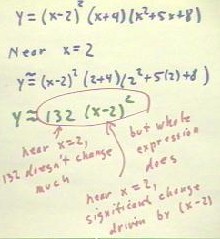 y = (x-2)² (x+4)(x²+5x+8)
Near x = 2
y ≅ (x-2)² (2+4)(2²+5(2)+8)
y ≅ 132 (x-2)²
near x=2,
132 doesn't change
much
but whole
expression
does
near x = 2,
significant change
driven by (x-2)